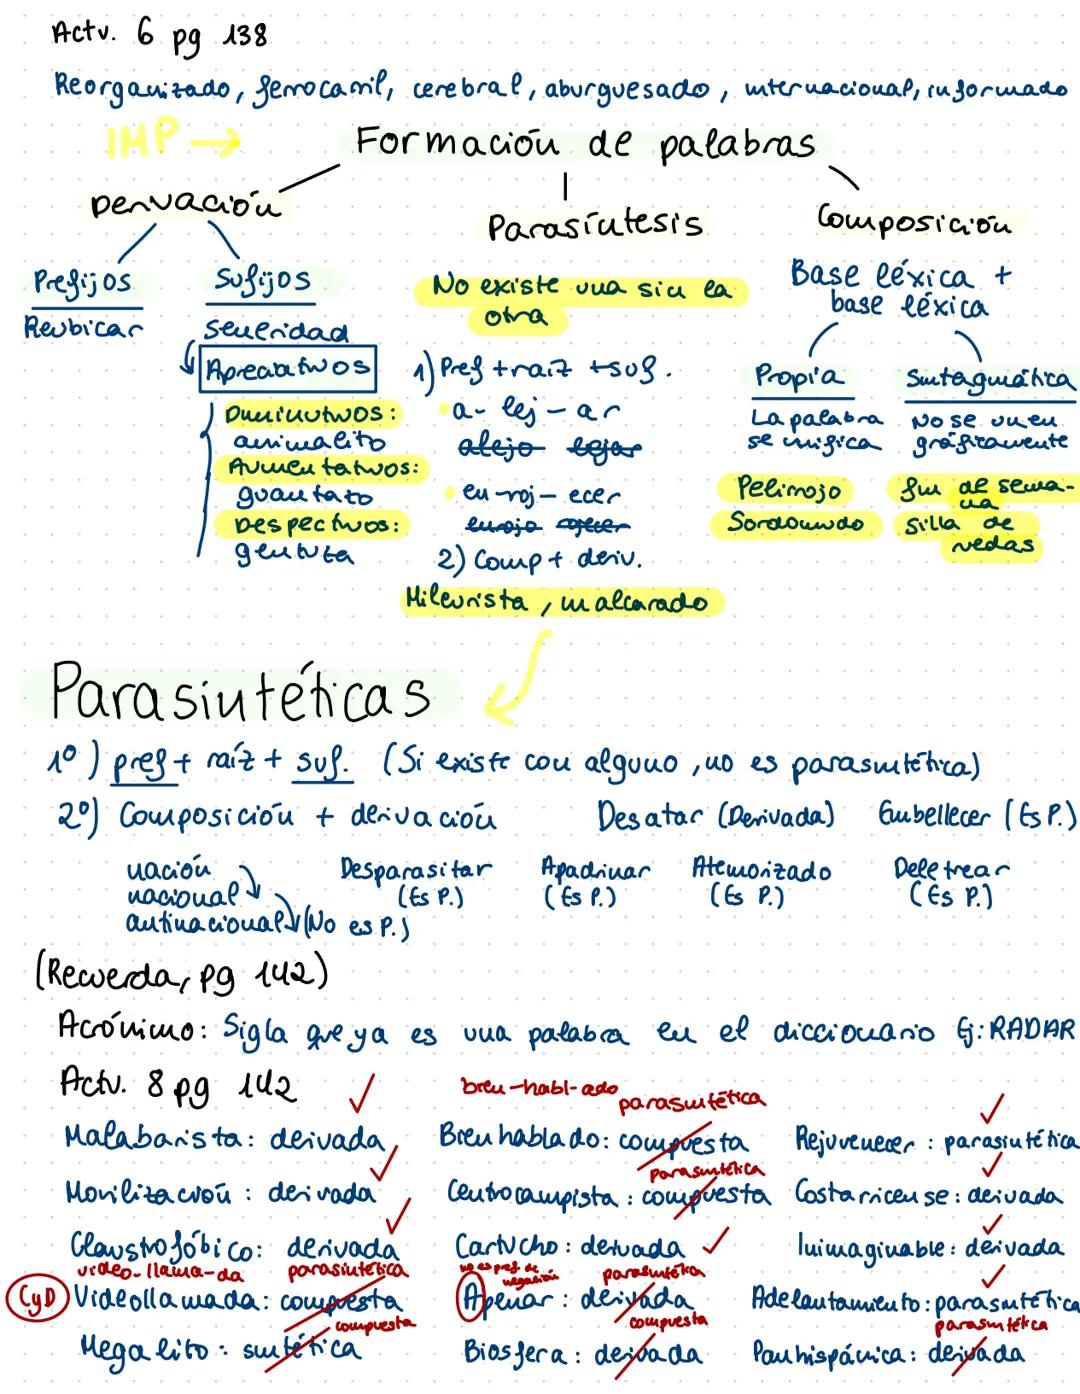 Actv. 6 pg 138
Reorganizado, ferrocarril, cerebral, aburguesado, internacional, informado
IMP → Formación de palabras
Derivación
Parasíntesis
Composición
Prefijos
Reubicar
Sufijos
Seneridad
Apreciativos
Diminutivos:
animalito
Aumentativos:
guantazo
Despectivos:
gentuza
No existe una sin la
otra
1) Pref + raíz + suf.
a- lej - ar
alejo lejar
en - roj - ecer
enrojo rojecer
2) Comp + deriv.
Mileurista, malcarado
Base léxica +
base léxica
Propia
La palabra
se unifica
Pelirrojo
Sordomudo
Sintagmática
No se unen
gráficamente
fin de sema-
na
silla de
ruedas
Parasintéticas
1º) pref + raíz + suf. (Si existe con alguno, no es parasintética)
2º) Composición + derivación Desatar (Derivada) Embellecer (Es P.)
nación
nacional
antinacional (No es P.)
Desparasitar
(Es P.)
Apadrinar
(Es P.)
Atemorizado
(Es P.)
Deletrear
(Es P.)
(Recuerda, pg 142)
Acrónimo: Sigla que ya es una palabra en el diccionario Ej: RADAR
Actv. 8 pg 142
Malabarista: derivada
Movilización: derivada
Claustrofóbico: derivada
video-llama-da parasintética
CyD Videollamada: compuesta
compuesta
Megalito: sintética
bien-habl-ado parasintética
Bien hablado: compuesta
parasintética
Centrocampista: compuesta
Cartucho: derivada
no es pref. de
negación parasintética
Apenar: derivada
compuesta
Biosfera: derivada
Rejuvenecer: parasintética
Costarricense: derivada
Inimaginable: derivada
Adelantamiento: parasintética
parasintética
Panhispánica: derivada